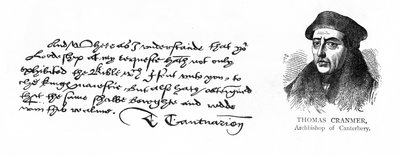 And Where as I understande that yor
Lordeship at my requeste hath not only
exhibited the Bible which I sent unto you, to
the Kings maiestie, but also hath obteigned
that the same shalbe bowghte and redde
within his realme.
T. Cantuarien
THOMAS CRANMER,
Archbishop of Canterbery.